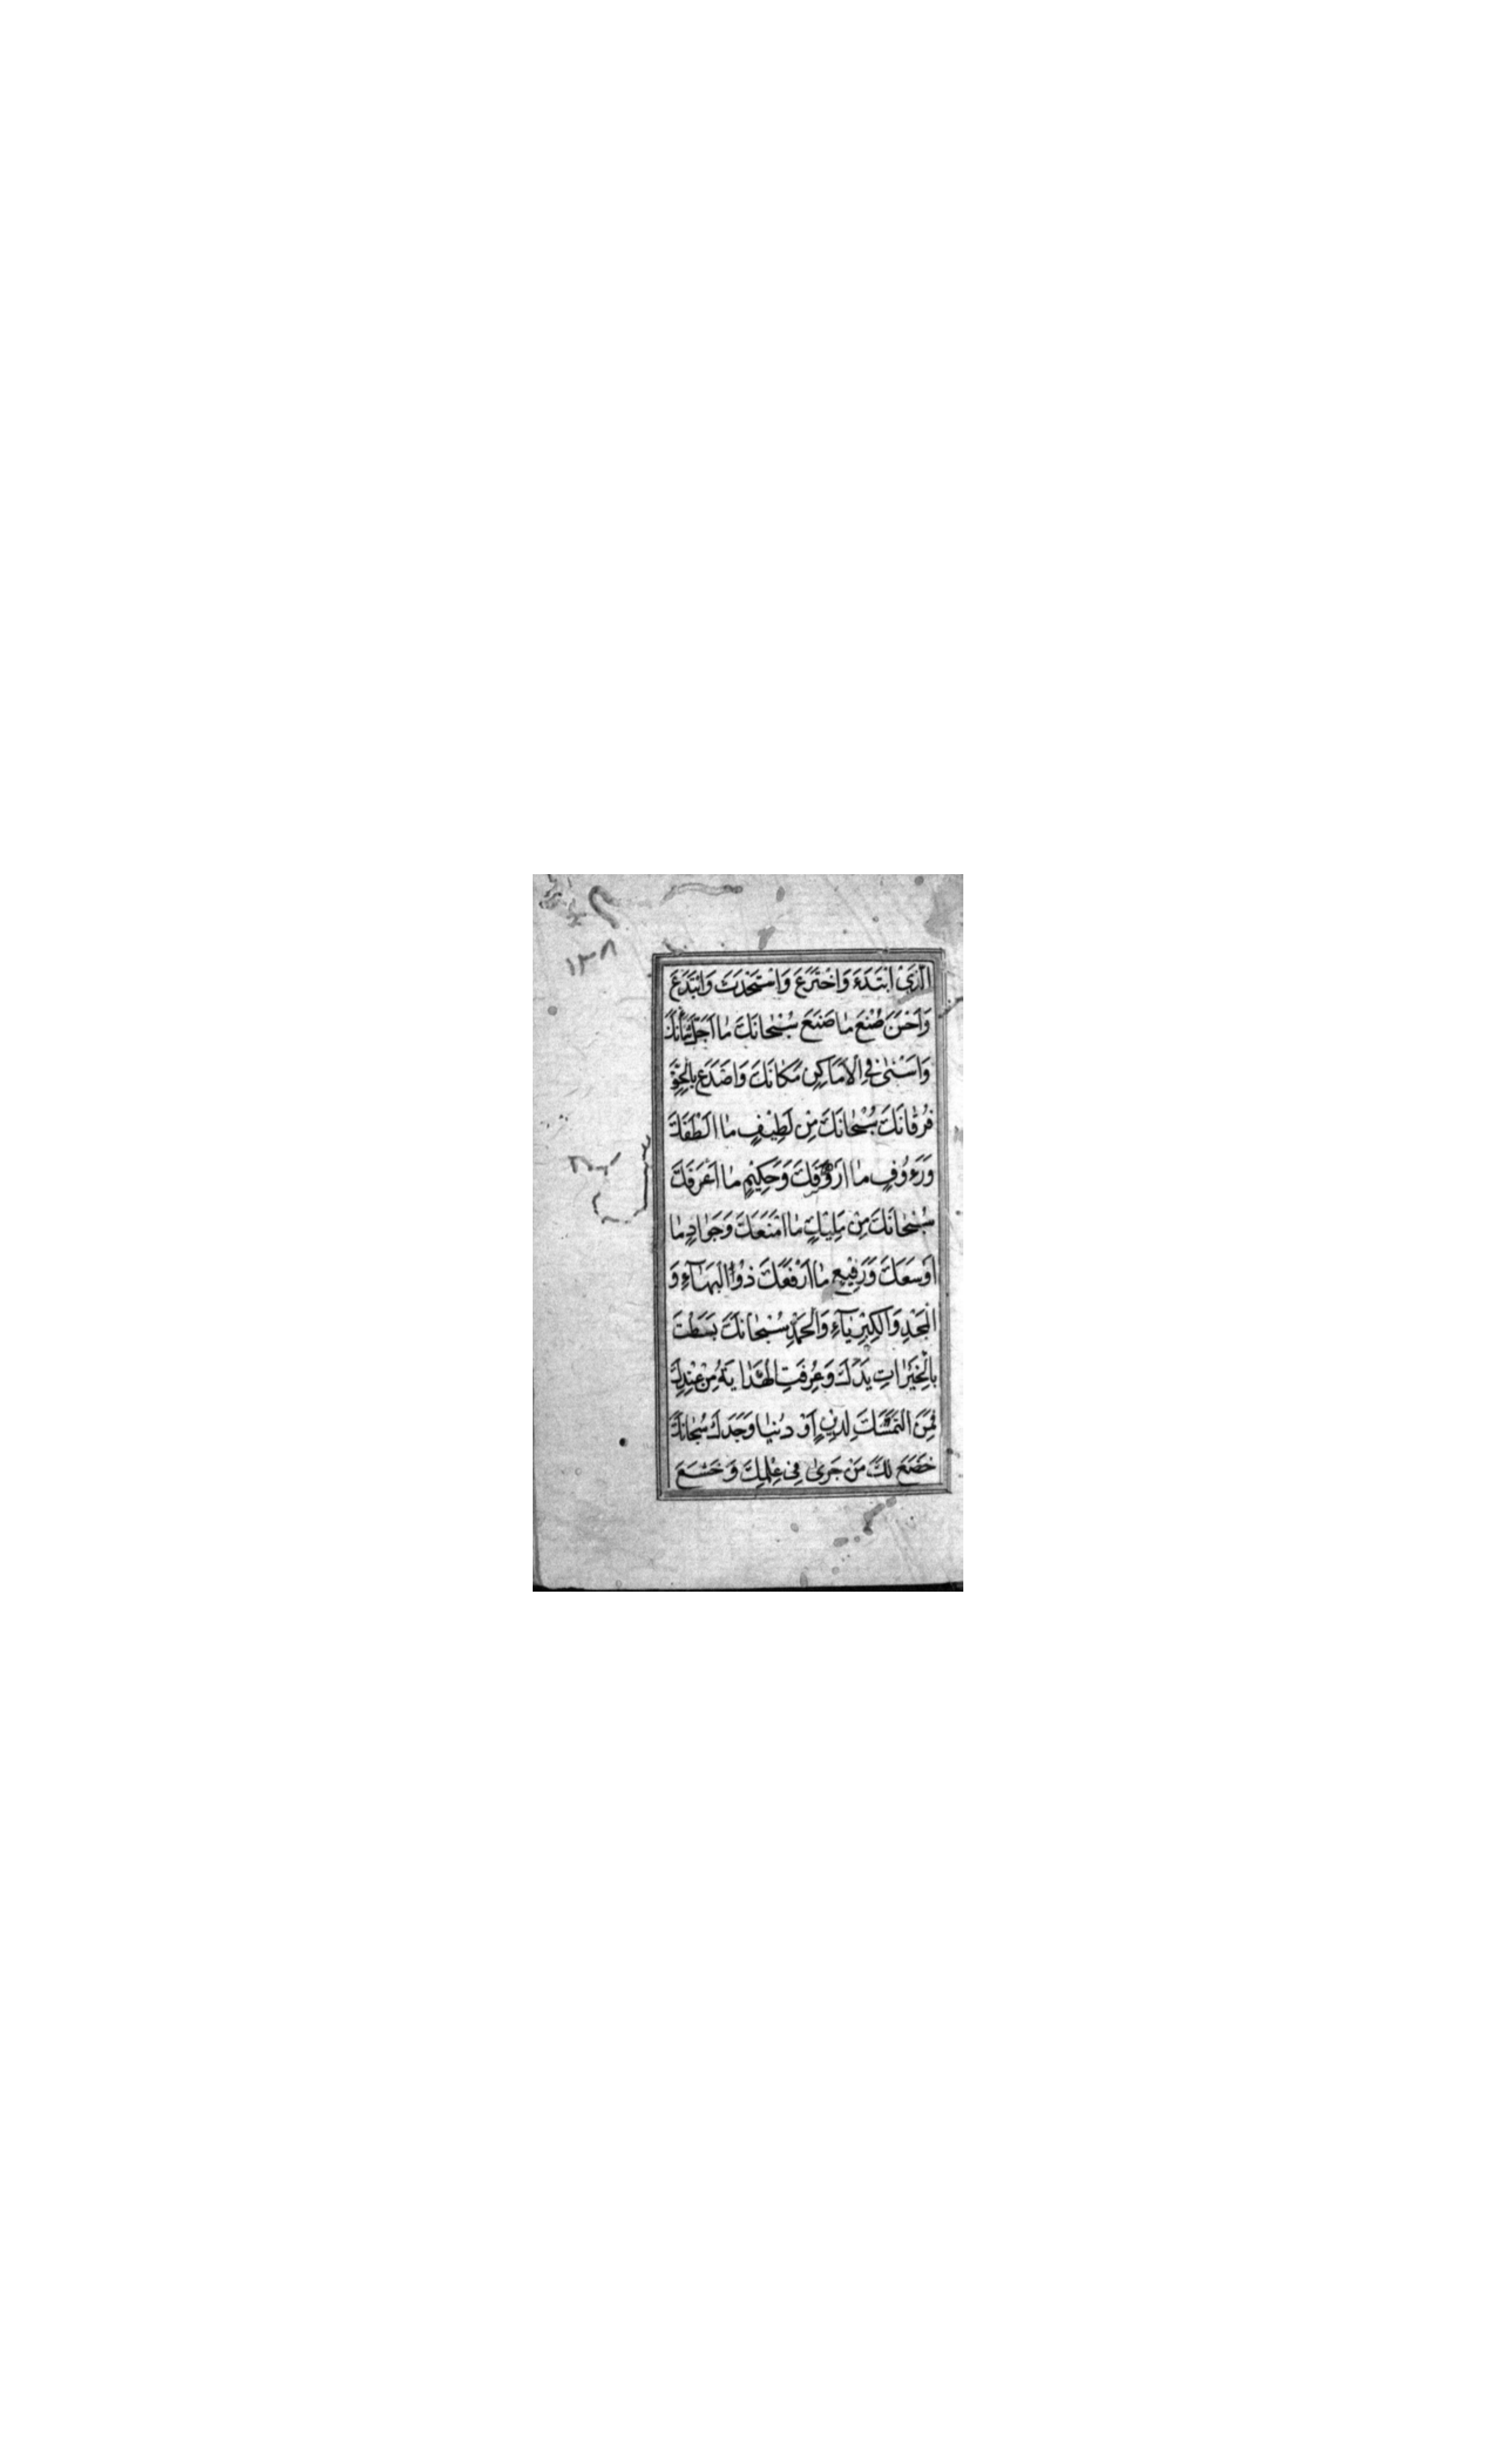 ١٣٨
الَّذِي ابْتَدَءَ وَاخْتَرَعَ وَاسْتَحْدَثَ وَابْتَدَعَ
وَاَحْسَنَ صُنْعَ مٰا صَنَعَ سُبْحٰانَكَ مٰا اَجَلَّ شَأْنَكَ
وَاَسْنٰى فِي الْاَمٰاكِنِ مَكٰانَكَ وَاَصْدَعَ بِالْحَقِّ
فُرْقٰانَكَ سُبْحٰانَكَ مِنْ لَطِيفٍ مٰا اَلْطَفَكَ
وَرَءُوفٍ مٰا اَرْءَفَكَ وَحَكِيْمٍ مٰا اَعْرَفَكَ
سُبْحٰانَكَ مِنْ مَلِيْكٍ مٰا اَمْنَعَكَ وَجَوٰادٍ مٰا
اَوْسَعَكَ وَرَفِيْعٍ مٰا اَرْفَعَكَ ذُو الْبَهٰآءِ وَ
الْمَجْدِ وَالْكِبْرِيٰآءِ وَالْحَمْدِ سُبْحٰانَكَ بَسَطْتَ
بِالْخَيْرٰاتِ يَدَكَ وَعُرِفَتِ الْهِدٰايَةُ مِنْ عِنْدِكَ
فَمَنِ الْتَمَسَكَ لِدِيْنٍ اَوْ دُنْيٰا وَجَدَكَ سُبْحٰانَكَ
خَضَعَ لَكَ مَنْ جَرىٰ فِي عِلْمِكَ وَخَشَعَ